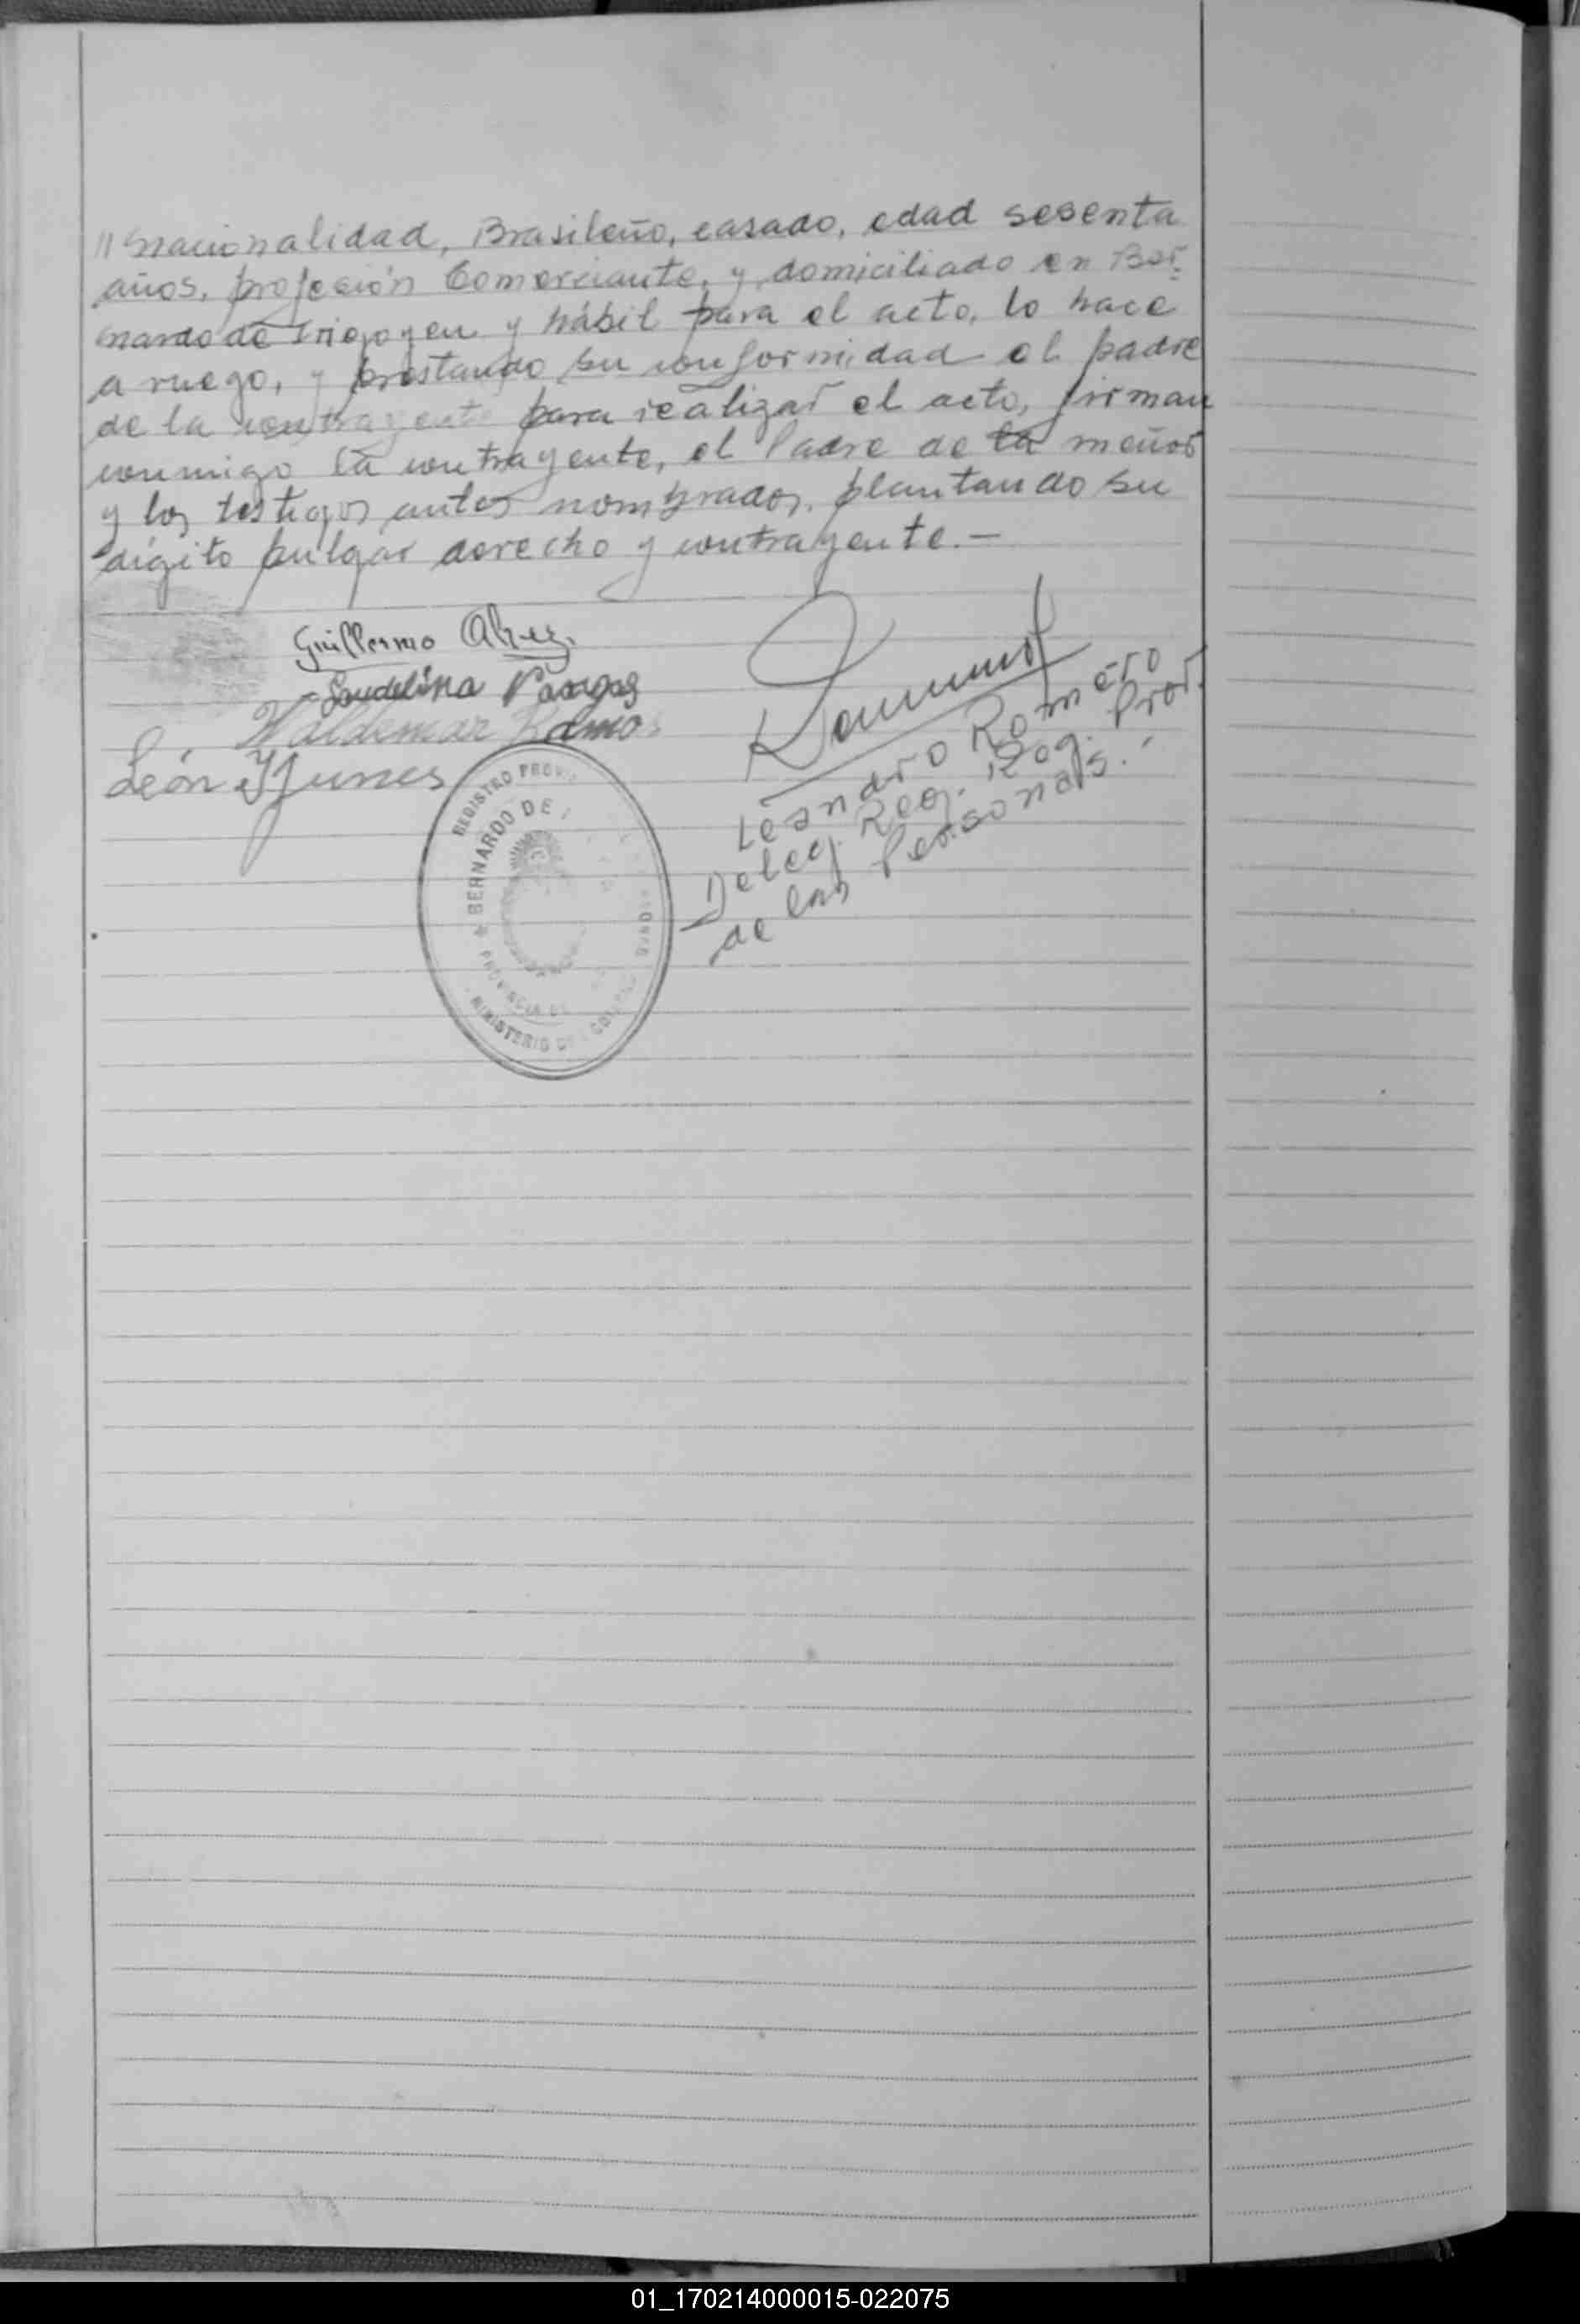 // nacionalidad, Brasileño, casado, edad sesenta
años, profesión Comerciante, y domiciliado en Ber-
nardo de Irigoyen y hábil para el acto, lo hace
a ruego, y prestando su conformidad el padre
de la contrayente para realizar el acto, firman
conmigo la contrayente, el Padre de la menor
y los testigos antes nombrados, plantando su
dígito pulgar derecho y contrayente.—
Guillermo Alvez.
Laudelina Vargas
Waldemar Ramos
León Nunes
Leandro Romero
Deleg. Reg. Prov.
de las Personas.
REGISTRO PROV
BERNARDO DE I
PROVINCIA DE
MINISTERIO DE GO
01_170214000015-022075